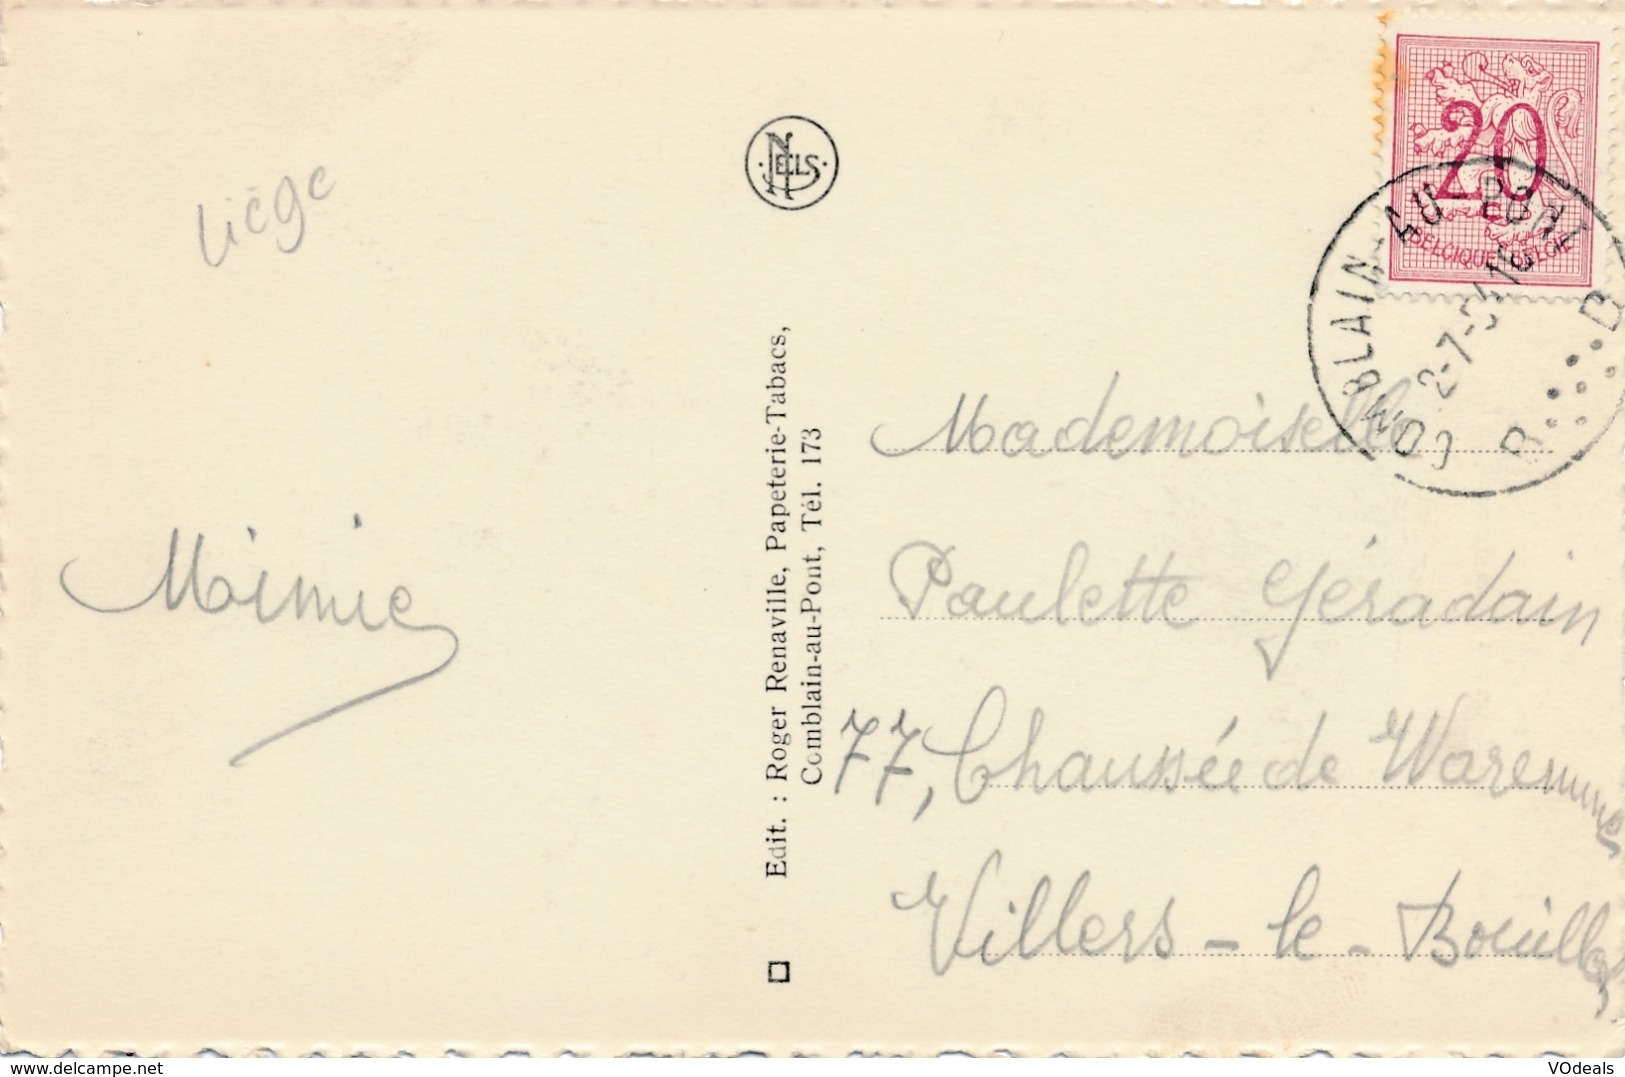 Liège
Mimie
NELS
Edit. : Roger Renaville, Papeterie-Tabacs,
Comblain-au-Pont, Tél. 173
20
BELGIQUE BELGIE
COMBLAIN-AU-PONT
B B
Mademoiselle
Paulette Géradain
77, Chaussée de Waremme
Villers-le-Bouillet
www.delcampe.net
VOdeals